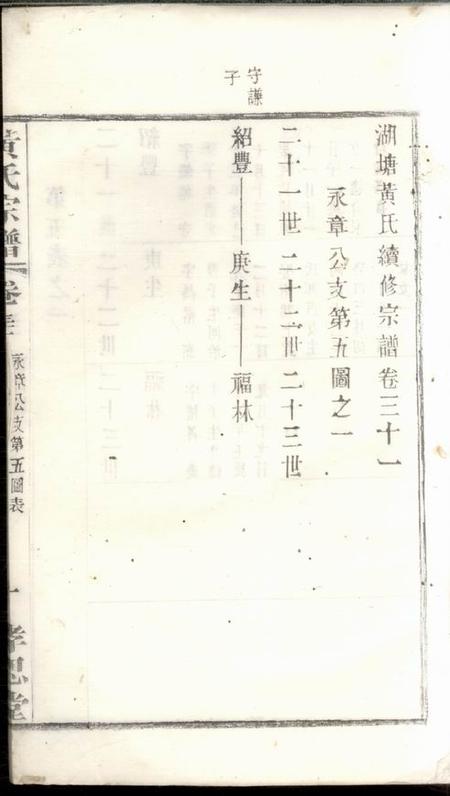 湖塘黃氏續修宗譜卷三十一
永章公支第五圖之一
二十一世 二十二世 二十三世
守謙
子
紹豐——庚生——福林
黃氏宗譜
永章公支第五圖表
一
孝思堂